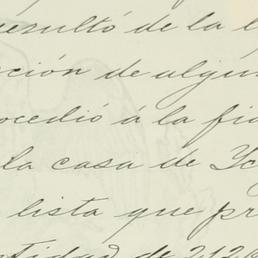 resultó de la l
cción de algun
ocedió á la fia
la casa de Yc
lista que pr
ntidad de 212